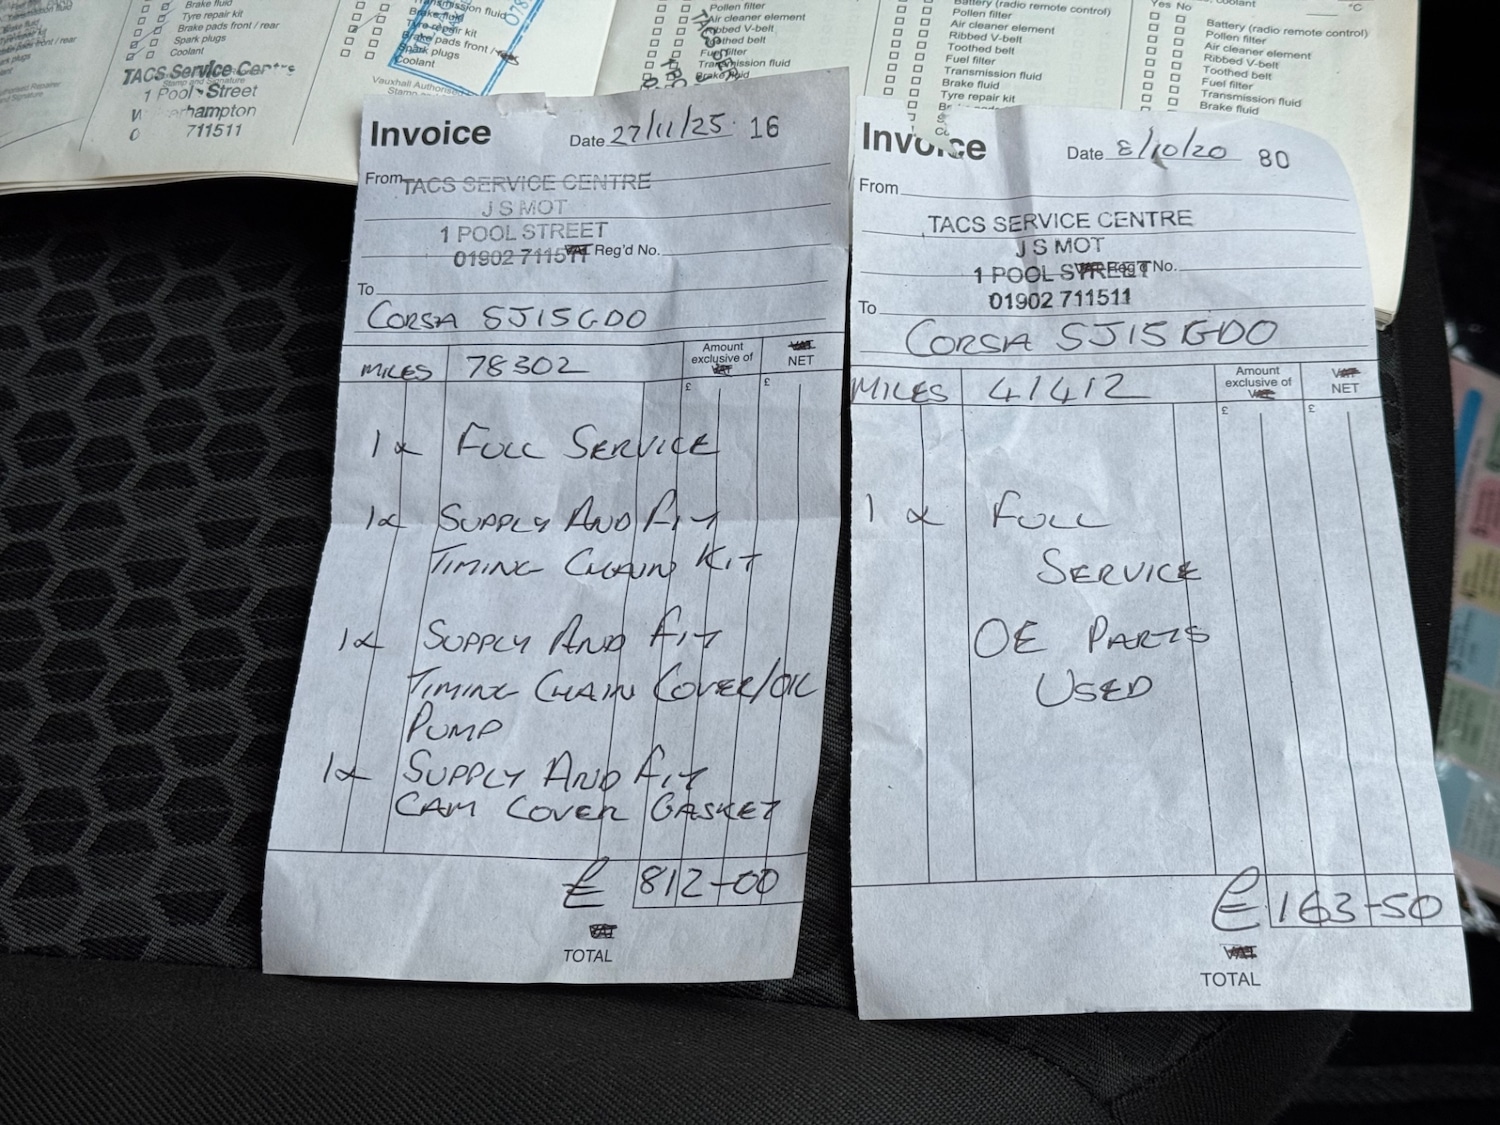 Brake fluid
Tyre repair kit
Brake pads front / rear
Spark plugs
Coolant
TACS Service Centre
1 Pool Street
711511
Transmission fluid
Brake fluid
Tyre repair kit
Brake pads front /
Spark plugs
Coolant
Vauxhall Authorised
Pollen filter
Air cleaner element
Ribbed V-belt
Toothed belt
Fuel filter
Transmission fluid
Brake fluid
Battery (radio remote control)
Pollen filter
Air cleaner element
Ribbed V-belt
Toothed belt
Fuel filter
Transmission fluid
Brake fluid
Tyre repair kit
Yes No
Coolant
°C
Battery (radio remote control)
Pollen filter
Air cleaner element
Ribbed V-belt
Toothed belt
Fuel filter
Transmission fluid
Brake fluid
Invoice
Date 27/11/25 16
From TACS SERVICE CENTRE
J S MOT
1 POOL STREET
01902 711511 Reg'd No.
To
CORSA SJ15GDO
MILES 78302
Amount exclusive of
NET
£ £
1x FULL SERVICE
1x SUPPLY AND FIT
TIMING CHAIN KIT
1x SUPPLY AND FIT
TIMING CHAIN COVER/OIL
PUMP
1x SUPPLY AND FIT
CAM COVER GASKET
£ 812-00
TOTAL
Invoice
Date 8/10/20 80
From
TACS SERVICE CENTRE
J S MOT
1 POOL STREET Reg'd No.
01902 711511
To
CORSA SJ15GDO
MILES 41412
Amount exclusive of
NET
£ £
1 x FULL
SERVICE
OE PARTS
USED
£ 163-50
TOTAL